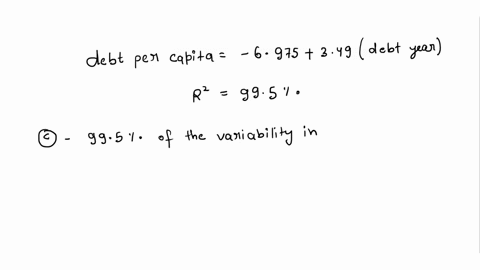 debt per capita = -6.975 + 3.49 (debt year)
R² = 99.5 %.
ⓒ - 99.5 %. of the variability in